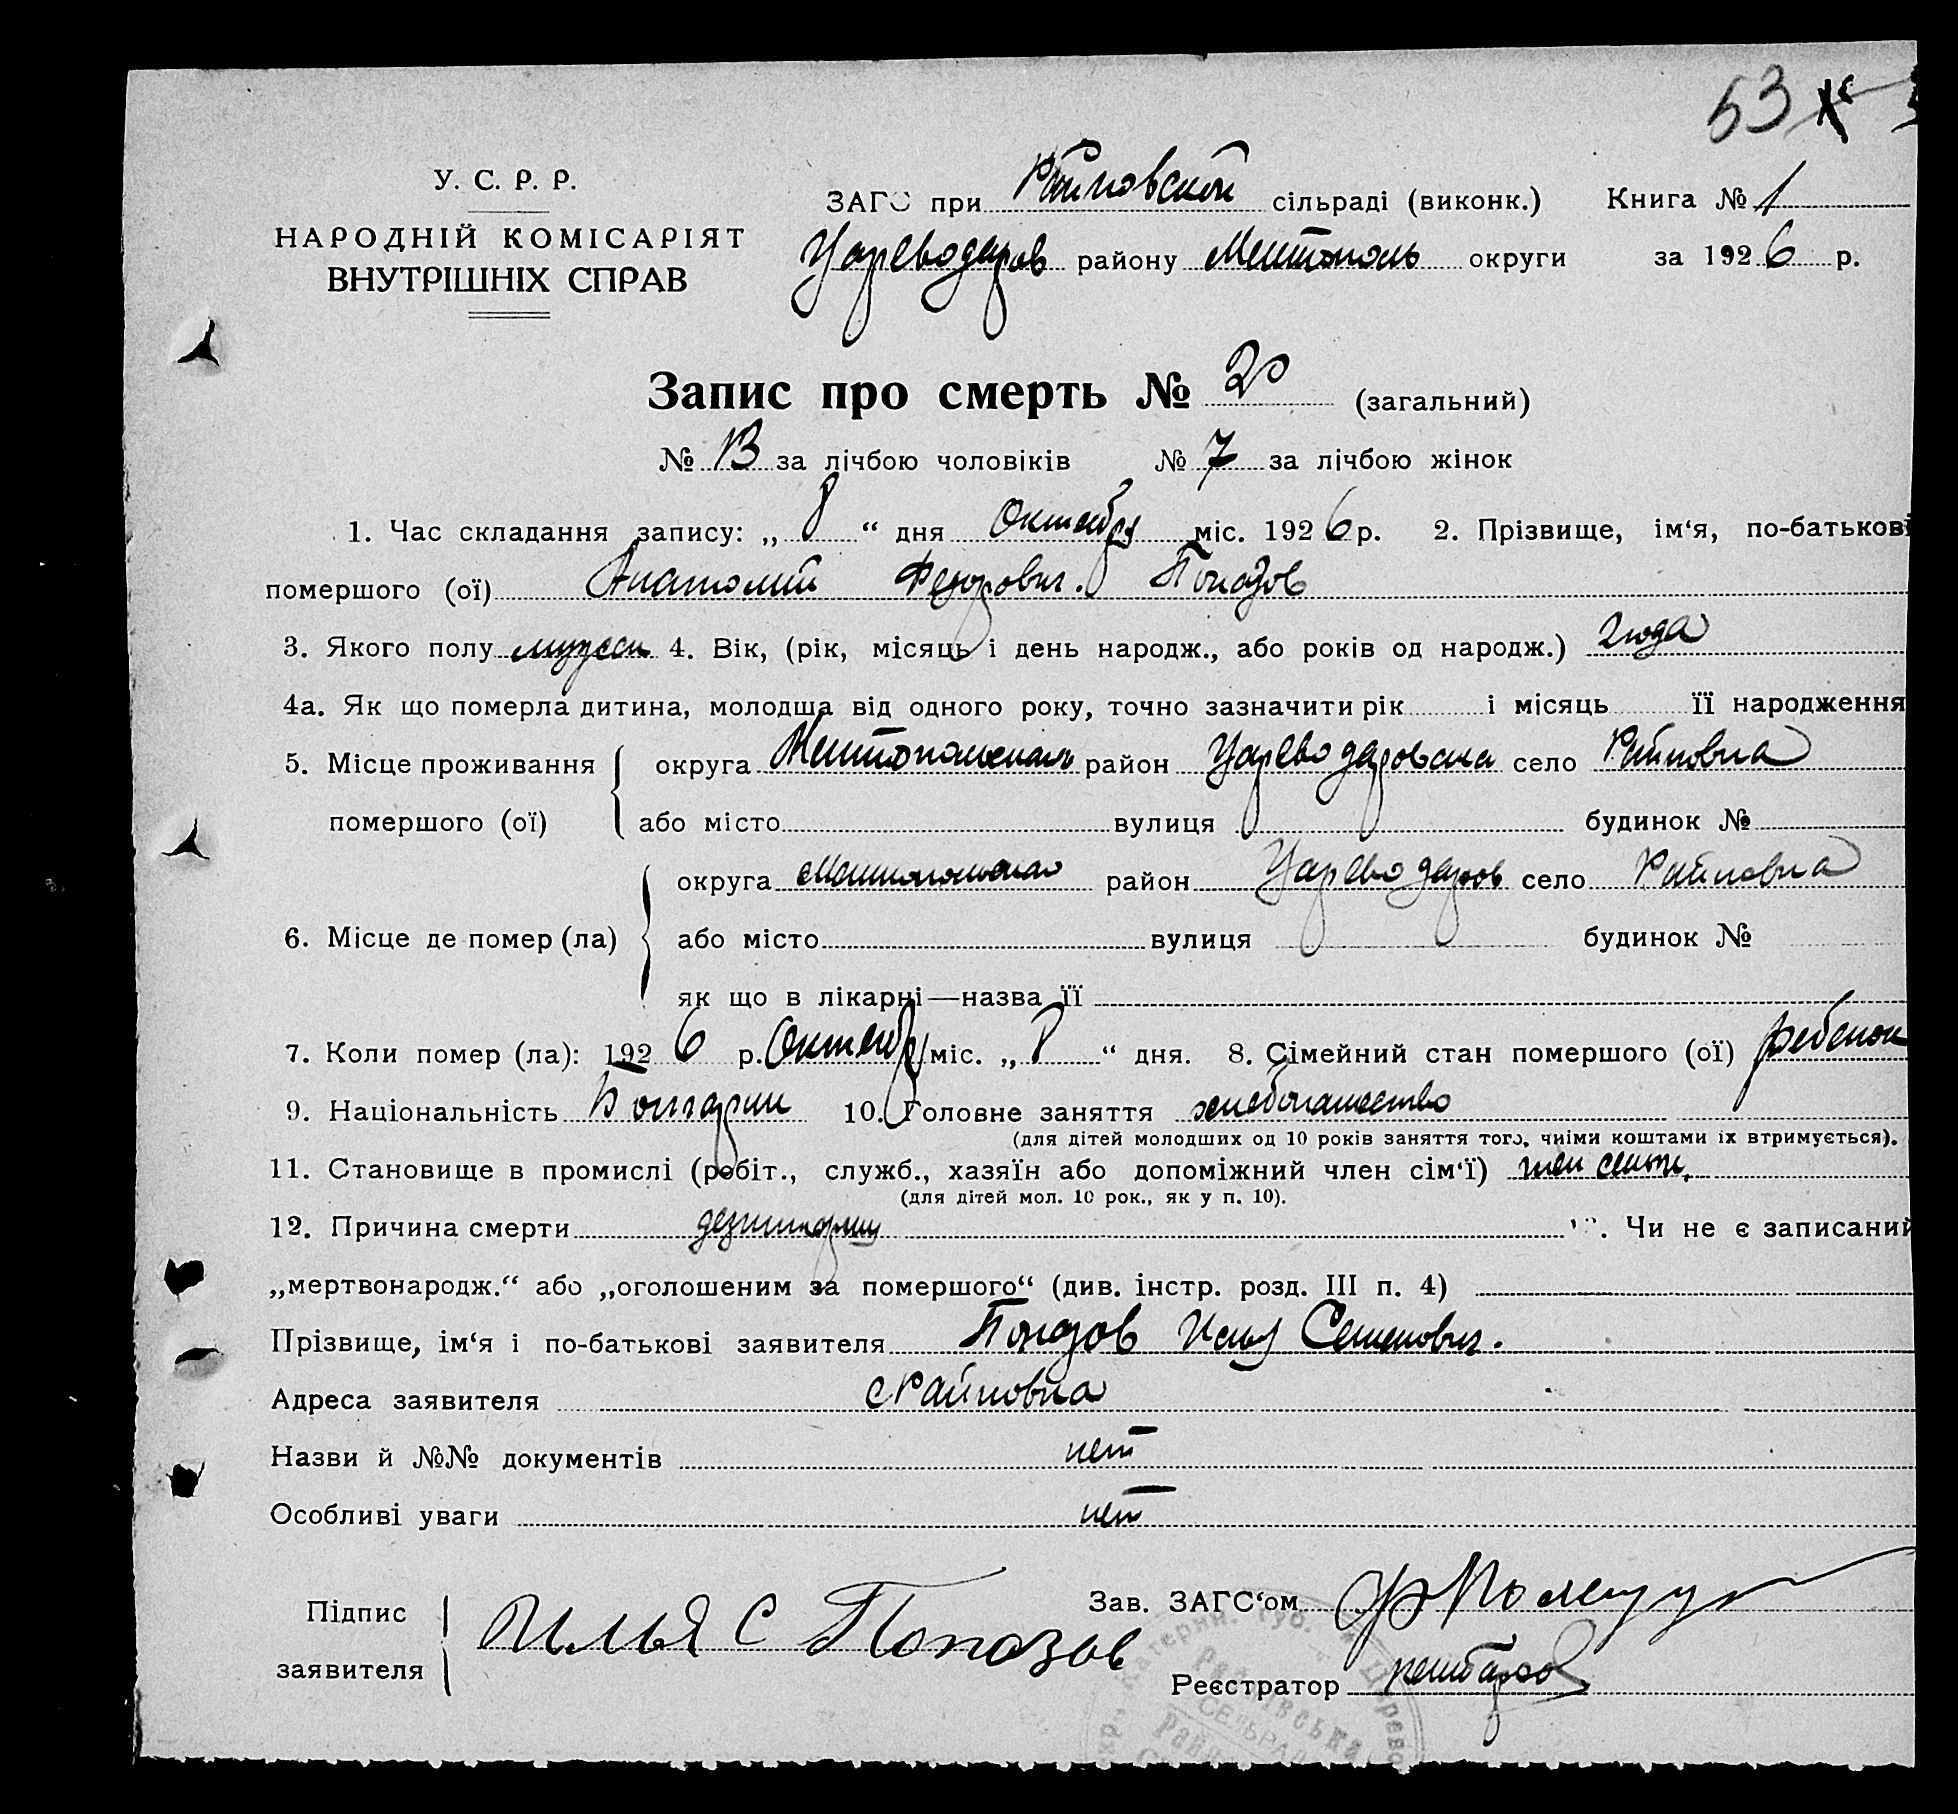 53
У. С. Р. Р.
НАРОДНІЙ КОМІСАРІЯТ
ВНУТРІШНІХ СПРАВ
ЗАГС при Райновской сільраді (виконк.) Книга № 1
Цареводаров району Мелитополь округи за 1926 р.
Запис про смерть № 20 (загальний)
№ 13 за лічбою чоловіків № 7 за лічбою жінок
1. Час складання запису: „ 8 “ дня Октебря міс. 1926 р. 2. Прізвище, ім‘я, по-батькові
помершого (ої) Анатолий Федорович. Попазов
3. Якого полу мужск 4. Вік, (рік, місяць і день народж., або років од народж.) 2 года
4а. Як що померла дитина, молодша від одного року, точно зазначити рік і місяць її народження
5. Місце проживання округа Мелитопольская район Царево даровска село Райновка
помершого (ої) або місто вулиця будинок №
округа Мелитопольская район Царево даров село Райновка
6. Місце де помер (ла) або місто вулиця будинок №
як що в лікарні—назва її
7. Коли помер (ла): 1926 р. Октебр міс. „ 8 “ дня. 8. Сімейний стан помершого (ої) ребенок
9. Національність Болгарин 10. Головне заняття хлебопашество
(для дітей молодших од 10 років заняття того, чиіми коштами їх втримується).
11. Становище в промислі (робіт., служб., хазяїн або допоміжний член сім‘ї) член семьи.
(для дітей мол. 10 рок., як у п. 10).
12. Причина смерти дезинтерии . Чи не є записаний
„мертвонародж.“ або „оголошеним за помершого“ (див. інстр. розд. III п. 4)
Прізвище, ім‘я і по-батькові заявителя Попазов Илья Семенович.
Адреса заявителя с Райновка
Назви й №№ документів нет
Особливі уваги нет
Підпис заявителя Илья С Попазов
Зав. ЗАГС‘ом
Реєстратор
СЕЛЬРАД